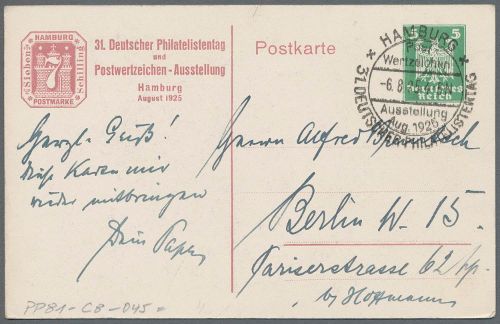 HAMBURG
Sieben
Schilling
7
POSTMARKE
31. Deutscher Philatelistentag
und
Postwertzeichen-Ausstellung
Hamburg
August 1925
Postkarte
5 5
Deutsches
Reich
HAMBURG
Post-
Wertzeichen
-6.8
Ausstellung
Aug. 1925
31. DEUTSCHER PHILATELISTENTAG
Herzl. Gruß!
diese Karten mir
wieder mitbringen
Dein Papa
Herrn Alfred
Berlin W. 15.
Pariserstrasse 62/
by Hoffmann
PP81-C8-045